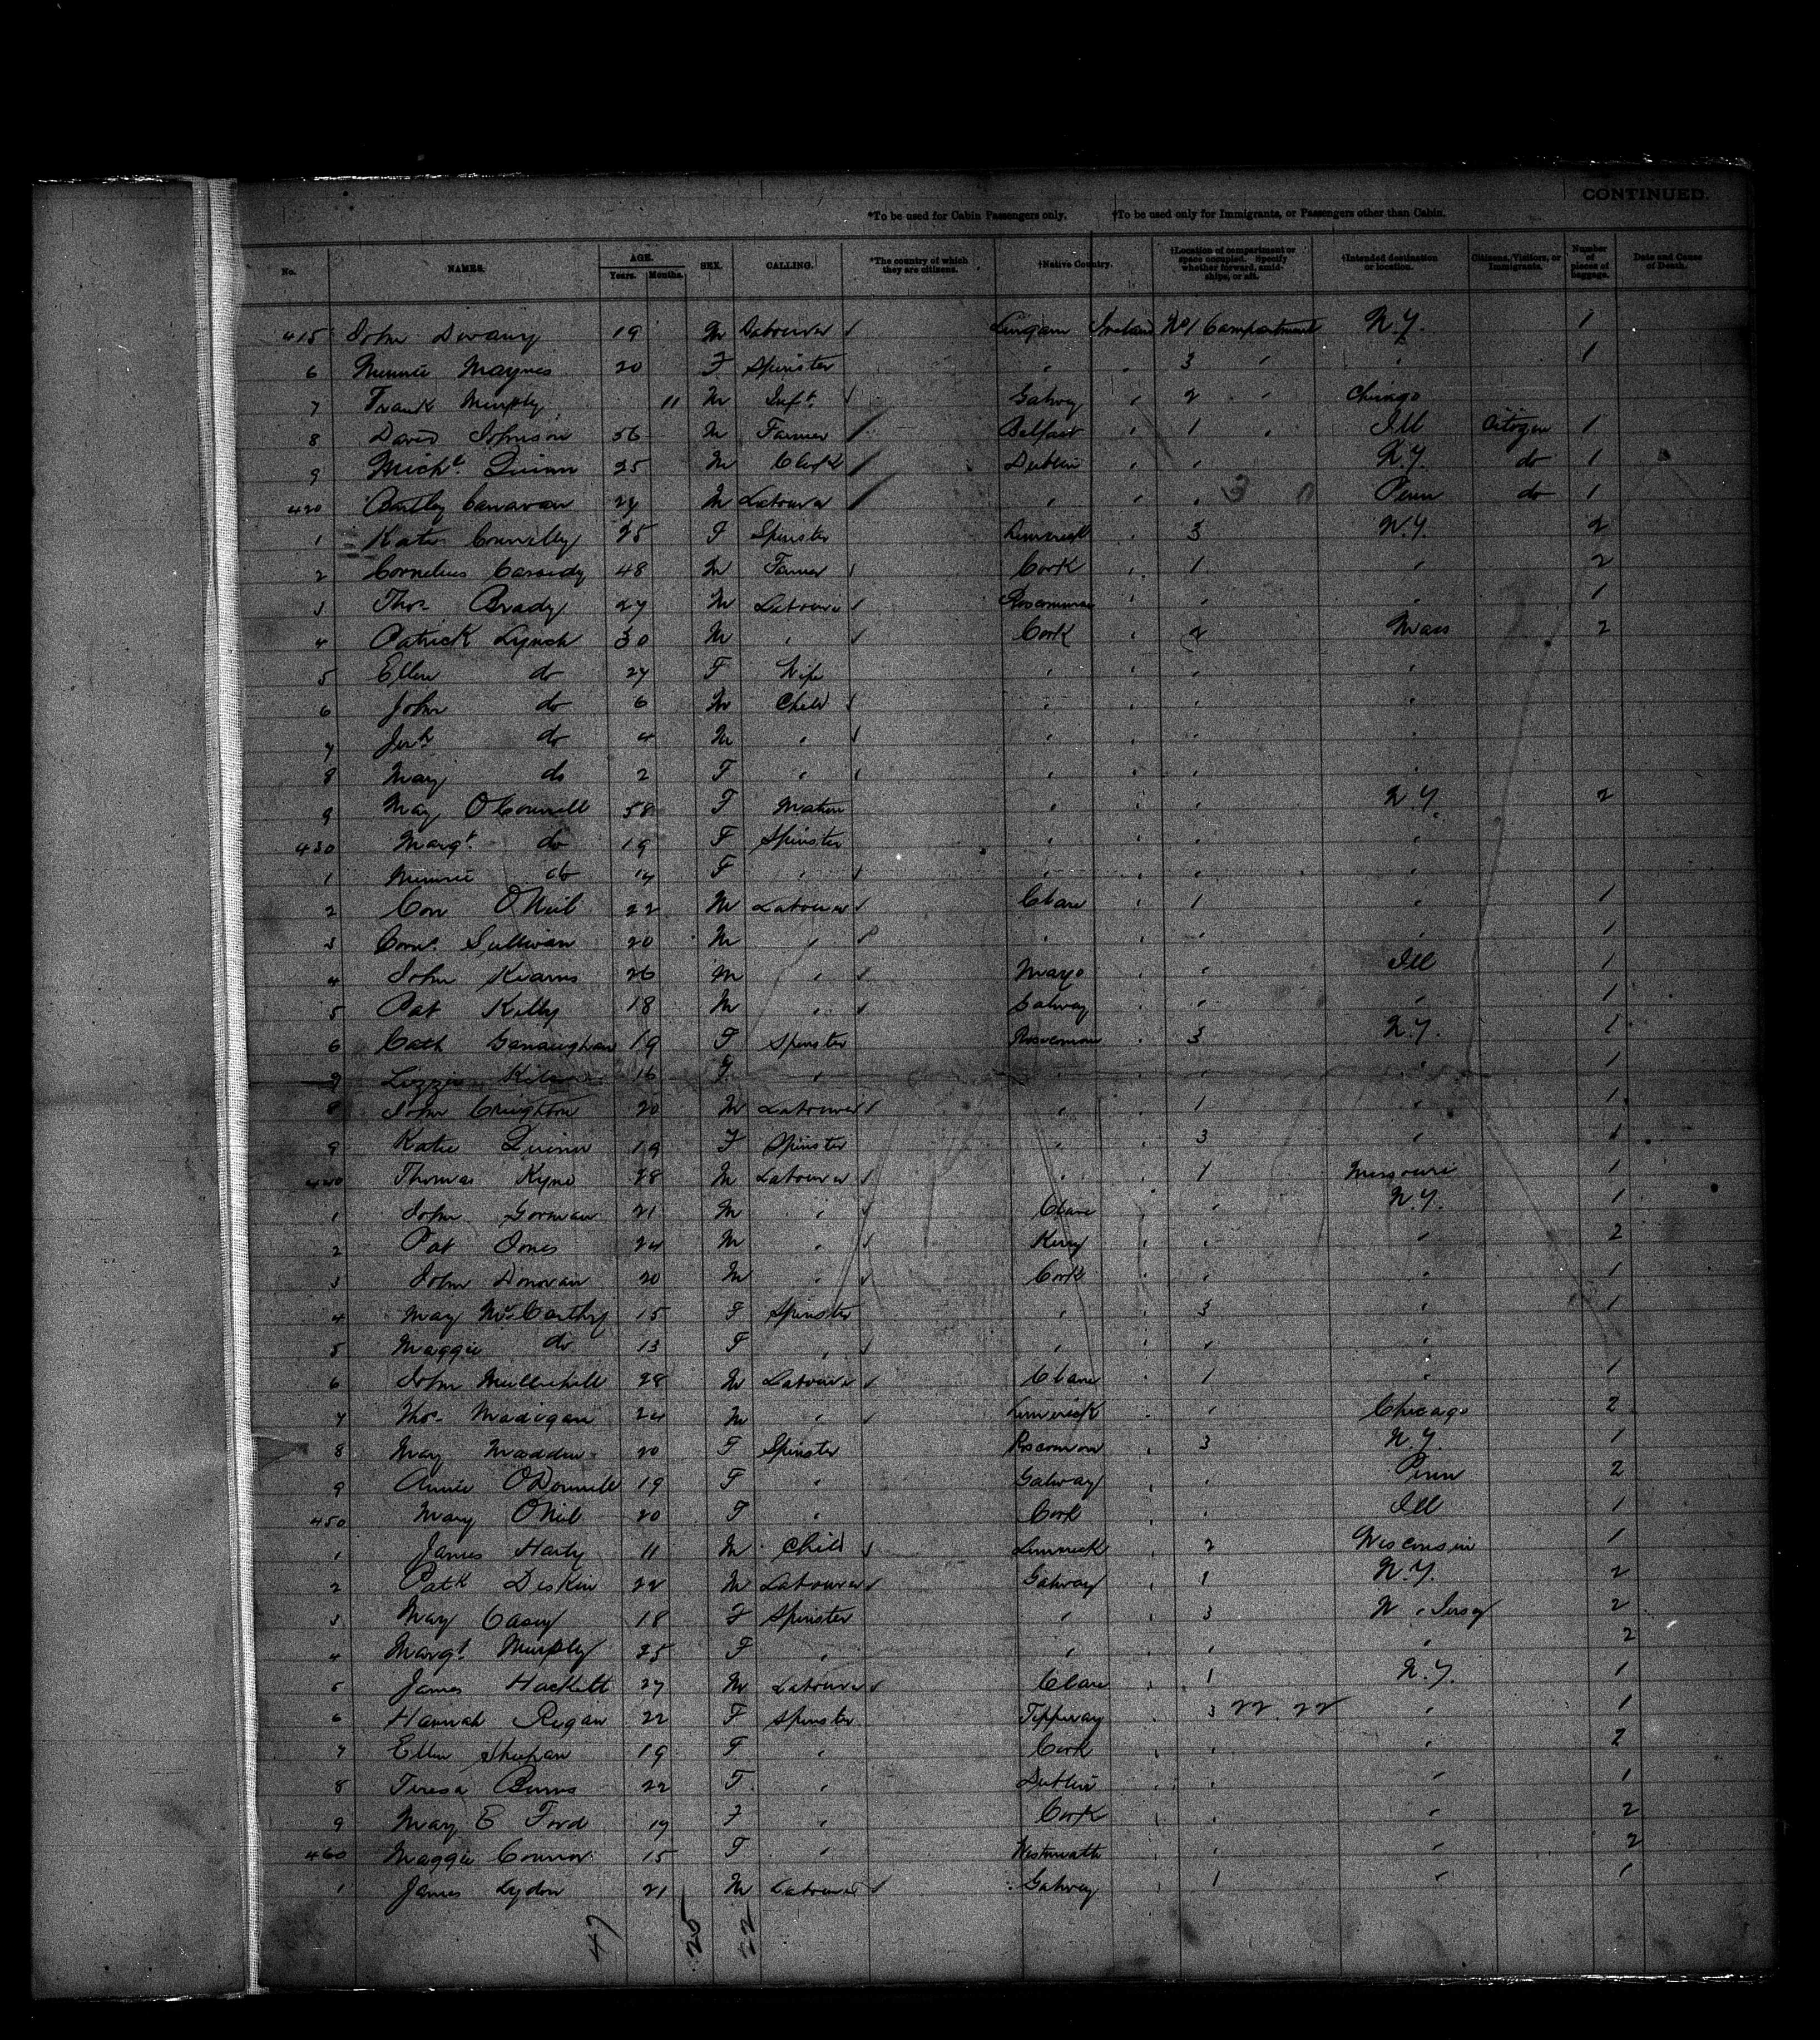 CONTINUED.
*To be used for Cabin Passengers only. †To be used only for Immigrants, or Passengers other than Cabin.
No. NAMES. AGE. Years. Months. SEX. CALLING. *The country of which they are citizens. †Native Country. †Location of compartment or space occupied. Specify whether forward, amidships, or aft. †Intended destination or location. Citizens, Visitors, or Immigrants. Number of pieces of baggage. Date and Cause of Death.
415 John 19 M Labourer Ireland No 1 Compartment N.Y. 1
6 Minnie Maynes 20 F Spinster " " 3 " " 1
7 Frank Murphy 11 M Inft. Galway " 2 " Chicago
8 David Johnson 56 M Farmer Belfast " 1 " Ill Citizen 1
9 Michl. Quinn 25 M Clerk Dublin " " N.Y. do 1
420 Bartley Canavan 27 M Labourer " " " 3 Penn do 1
1 Kate Connelly 25 F Spinster Limerick " 3 N.Y. 2
2 Cornelius Cassidy 48 M Farmer Cork " 1 " 2
3 Thos. Brady 27 M Labourer " " " 1
4 Patrick Lynch 30 M " Cork " 2 Mass 2
5 Ellen do 27 F Wife " " " "
6 John do 6 M Child " " " "
7 Jerh do 4 M " " " " "
8 Mary do 2 F " " " " "
9 May O'Connell 58 F Matron " " " N.Y. 2
430 Margt. do 19 F Spinster " " " "
1 Minnie do 14 F " " " " "
2 Con O'Neil 22 M Labourer Clare " 1 " 1
3 Corns. Sullivan 20 M " " " " " 1
4 John Kearns 26 M " Mayo " " Ill 1
5 Pat Kelly 18 M " Galway " " " 1
6 Cath 19 F Spinster Roscommon " 3 N.Y. 1
7 Lizzie 16 F " " " " " 1
8 John Creighton 20 M Labourer " " 1 " 1
9 Katie Quinn 19 F Spinster " " 3 " 1
440 Thomas Kyne 28 M Labourer " " 1 Missouri 1
1 John Gorman 21 M " Clare " " N.Y. 1
2 Pat Jones 24 M " Kerry " " " 2
3 John Donovan 20 M " Cork " " " 1
4 May McCarthy 15 F Spinster " " 3 " 1
5 Maggie do 13 F " " " " "
6 John Mullihill 28 M Labourer Clare " 1 " 1
7 Thos. Madigan 24 M " Limerick " " Chicago 2
8 May Madden 20 F Spinster Roscommon " 3 N.Y. 1
9 Annie O'Donnell 19 F " Galway " " Penn 2
450 Mary O'Neil 20 F " Cork " " Ill 1
1 James Harty 11 M Child Limerick " 2 Wisconsin 1
2 Patk Diskin 22 M Labourer Galway " 1 N.Y. 2
3 May Casey 18 F Spinster " " 3 N. Jersey 2
4 Margt. Murphy 25 F " " " " " 2
5 James Hackett 27 M Labourer Clare " 1 N.Y. 1
6 Hannah Regan 22 F Spinster Tipperay 3 22. 22 " 1
7 Ellen Sheehan 19 F " Cork " " " 2
8 Teresa Burns 22 F " Dublin " " " 1
9 May E Ford 19 F " Cork " " " 2
460 Maggie Connor 15 F " Westmeath " " " 2
1 James Lydon 21 M Labourer Galway " 1 " 1
47 25 22